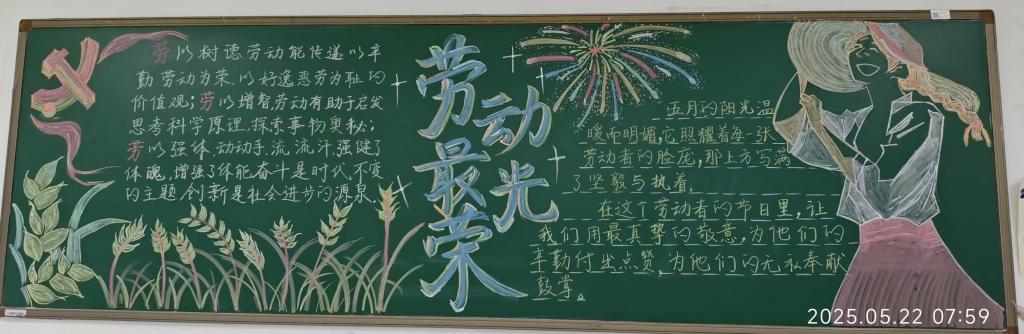 劳以树德,劳动能传递以辛
勤劳动为荣,以好逸恶劳为耻的
价值观;劳以增智劳动有助于启发
思考科学原理,探索事物奥秘;
劳以强体,动动手,流流汗,强健了
体魄,增强了体能奋斗是时代不变
的主题,创新是社会进步的源泉。
劳动
最光
荣
五月的阳光温
暖而明媚,它照耀着每一张
劳动者的脸庞,那上方写满
了坚毅与执着。
在这个劳动者的节日里,让
我们用最真挚的敬意,为他们的
辛勤付出点赞,为他们的无私奉献
鼓掌。
2025.05.22 07:59